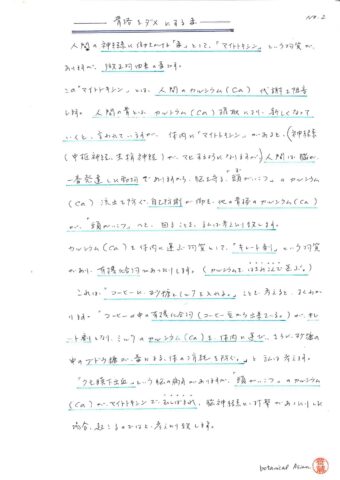 No. 2
骨格をダメにする毒
人間の神経線に働きかける「毒」として、「マイトトキシン」という物質が
ありますが、微生物由来の毒です。
この"マイトトキシン"とは、人間のカルシウム(Ca) 代謝を阻害
します。人間の骨とは、カルシウム(Ca) 摂取により、新しくなって
いくと、言われていますが、体内に「マイトトキシン」があると、(神経線
(中枢神経、末梢神経)が、マヒするようになりますが) 人間は脳が
一番発達した動物でありますから、脳を守る、"頭がいこつ"のカルシウム
(Ca) 流出を防ぐ、自己防衛が働き、他の骨格のカルシウム(Ca)
が、"頭がいこつ"へと、回ることを、私は考えり致します。
カルシウム(Ca)を体内に運ぶ物質として、"キレート剤"という物質
があり、有機化合物があったりします。(カルシウムを、はさみこんで運ぶ。)
これは、"コーヒーに砂糖とミルクを入れる。"ことを、考えると、よくわか
ります。"コーヒーの中の有機化合物(コーヒー豆から出来てる)が、キレ
ート剤となり、ミルクのカルシウム(Ca)を、体内に運び、さらに砂糖の
中のブドウ糖が、骨になる、体の消耗を防ぐ。"と私は考えます。
"クモ膜下出血"という脳の病気がありますが、"頭がいこつ"のカルシウム
(Ca)が、マイトトキシンで、脳神経に打撃があったりした
場合、起こるのではと、考えり致します。
botanical Asian